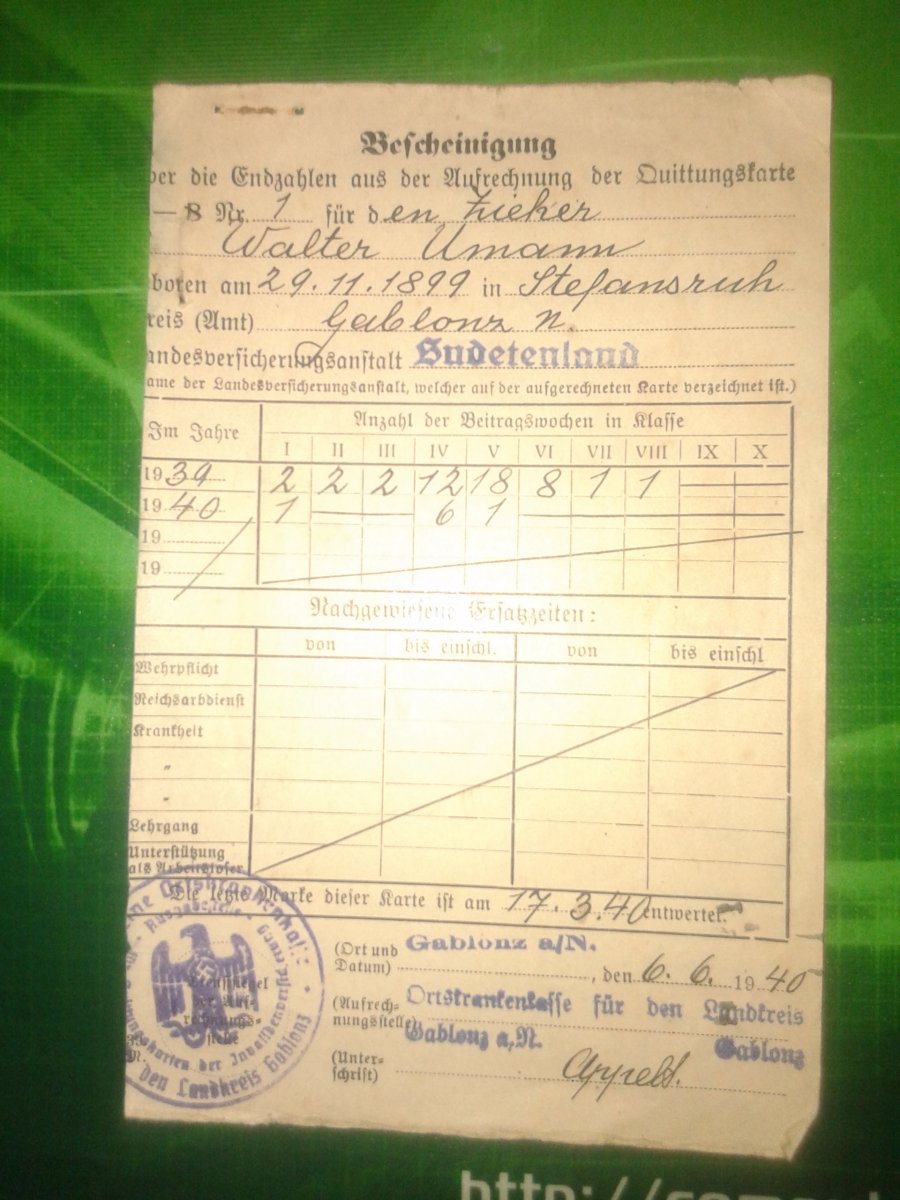 Bescheinigung
ber die Endzahlen aus der Aufrechnung der Quittungskarte
— B Nr. 1 für den Zieher
Walter Umann
boren am 29.11.1899 in Stefansruh
reis (Amt) Gablonz N.
andesversicherungsanstalt Sudetenland
ame der Landesversicherungsanstalt, welcher auf der aufgerechneten Karte verzeichnet ist.)
Im Jahre Anzahl der Beitragswochen in Klasse
I II III IV V VI VII VIII IX X
1939 2 2 2 12 18 8 1 1 — —
1940 1 — — 6 1 — — — — —
19
19
Nachgewiesene Ersatzzeiten:
von bis einschl. von bis einschl
Wehrpflicht
Reichsarbdienst
Krankheit
"
"
Lehrgang
Unterstützung
als Arbeitsloser
Die letzte Marke dieser Karte ist am 17.3.40 entwertet.
(Ort und Datum) Gablonz a/N. , den 6. 6. 1940
(Aufrechnungsstelle) Ortskrankenkasse für den Landkreis
Gablonz a/N. Gablonz
(Unterschrift)
Ausgabestelle
der Invalidenversicherung
den Landkreis Gablonz
http://